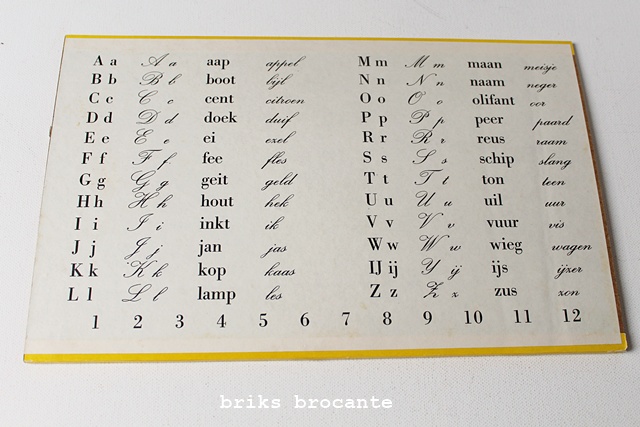 A a A a aap appel M m M m maan meisje
B b B b boot bijl N n N n naam neger
C c C c cent citroen O o O o olifant oor
D d D d doek duif P p P p peer paard
E e E e ei ezel R r R r reus raam
F f F f fee fles S s S s schip slang
G g G g geit geld T t T t ton teen
H h H h hout hek U u U u uil uur
I i I i inkt ik V v V v vuur vis
J j J j jan jas W w W w wieg wagen
K k K k kop kaas IJ ij Y ij ijs ijzer
L l L l lamp les Z z Z z zus zon
1 2 3 4 5 6 7 8 9 10 11 12
briks brocante